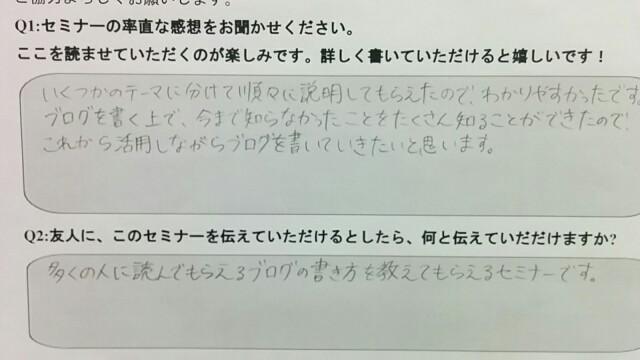 ご協力よろしくお願いします。
Q1:セミナーの率直な感想をお聞かせください。
ここを読ませていただくのが楽しみです。詳しく書いていただけると嬉しいです！
いくつかのテーマに分けて順々に説明してもらえたので、わかりやすかったです
ブログを書く上で、今まで知らなかったことをたくさん知ることができたので、
これから活用しながらブログを書いていきたいと思います。
Q2:友人に、このセミナーを伝えていただけるとしたら、何と伝えていだだけますか?
多くの人に読んでもらえるブログの書き方を教えてもらえるセミナーです。